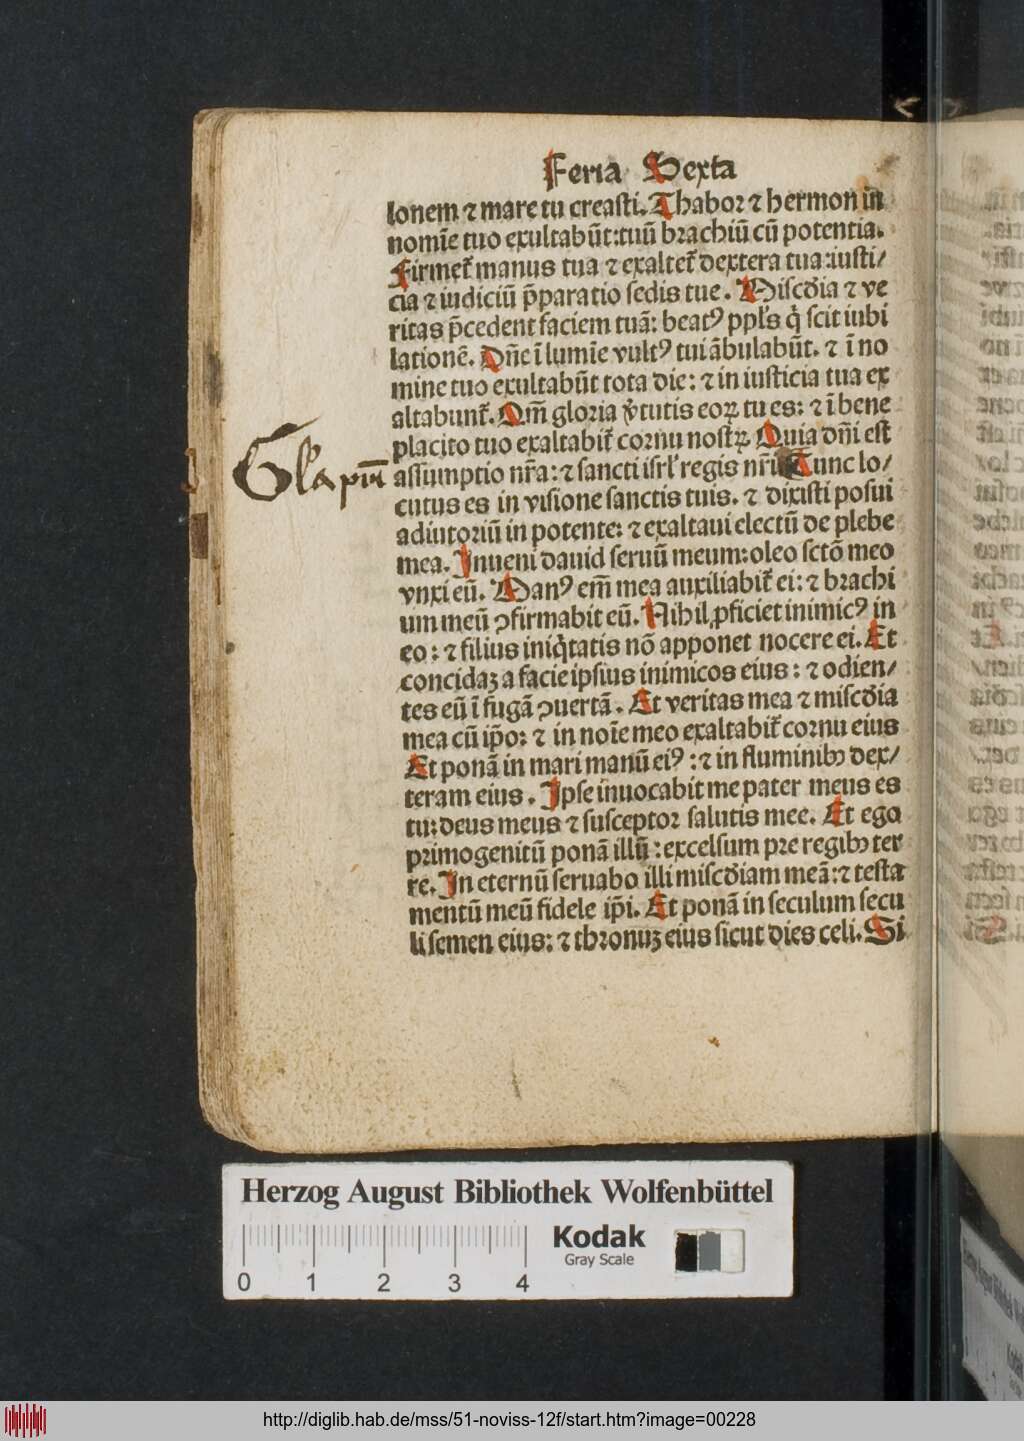 Feria Sexta
lonem ⁊ mare tu creasti. Thabor ⁊ hermon in
nomīe tuo exultabūt: tuū brachiū cū potentia.
Firmet᷑ manus tua ⁊ exaltet᷑ dextera tua: iusti/
cia ⁊ iudiciū p̄paratio sedis tue. Miscd̄ia ⁊ ve
ritas p̄cedent faciem tuā: beatꝰ ppl̄s q̇ scit iubi
lationē. Dn̄e ī lumīe vultꝰ tui ābulabūt. ⁊ ī no
mine tuo exultabūt tota die: ⁊ in iusticia tua ex
altabunt᷑. Qm̄ gloria v̄tutis eoꝝ tu es: ⁊ ī bene
placito tuo exaltabit᷑ cornu nostꝝ. Quia dn̄i est
Gl'a pr̄i
assumptio nr̄a: ⁊ sancti isrl' regis nr̄i. Tunc lo/
cutus es in visione sanctis tuis. ⁊ dixisti posui
adiutoriū in potente: ⁊ exaltaui electū de plebe
mea. Inueni dauid seruū meum: oleo sctō meo
vnxi eū. Manꝰ em̄ mea auxiliabit᷑ ei: ⁊ brachi
um meū ↄfirmabit eū. Nihil ꝓficiet inimicꝰ in
eo: ⁊ filius iniq̇tatis nō apponet nocere ei. Et
concidaꝫ a facie ipsius inimicos eius: ⁊ odien/
tes eū ī fugā ↄuertā. Et veritas mea ⁊ miscd̄ia
mea cū ip̄o: ⁊ in noīe meo exaltabit᷑ cornu eius
Et ponā in mari manū eiꝰ: ⁊ in fluminibꝫ dex/
teram eius. Ipse inuocabit me pater meus es
tu: deus meus ⁊ susceptor salutis mee. Et ego
primogenitū ponā illū: excelsum pre regibꝫ ter
re. In eternū seruabo illi miscd̄iam meā: ⁊ testa
mentū meū fidele ip̄i. Et ponā in seculum secu
li semen eius: ⁊ thronuꝫ eius sicut dies celi. Si
Herzog August Bibliothek Wolfenbüttel
0 1 2 3 4
Kodak
Gray Scale
http://diglib.hab.de/mss/51-noviss-12f/start.htm?image=00228